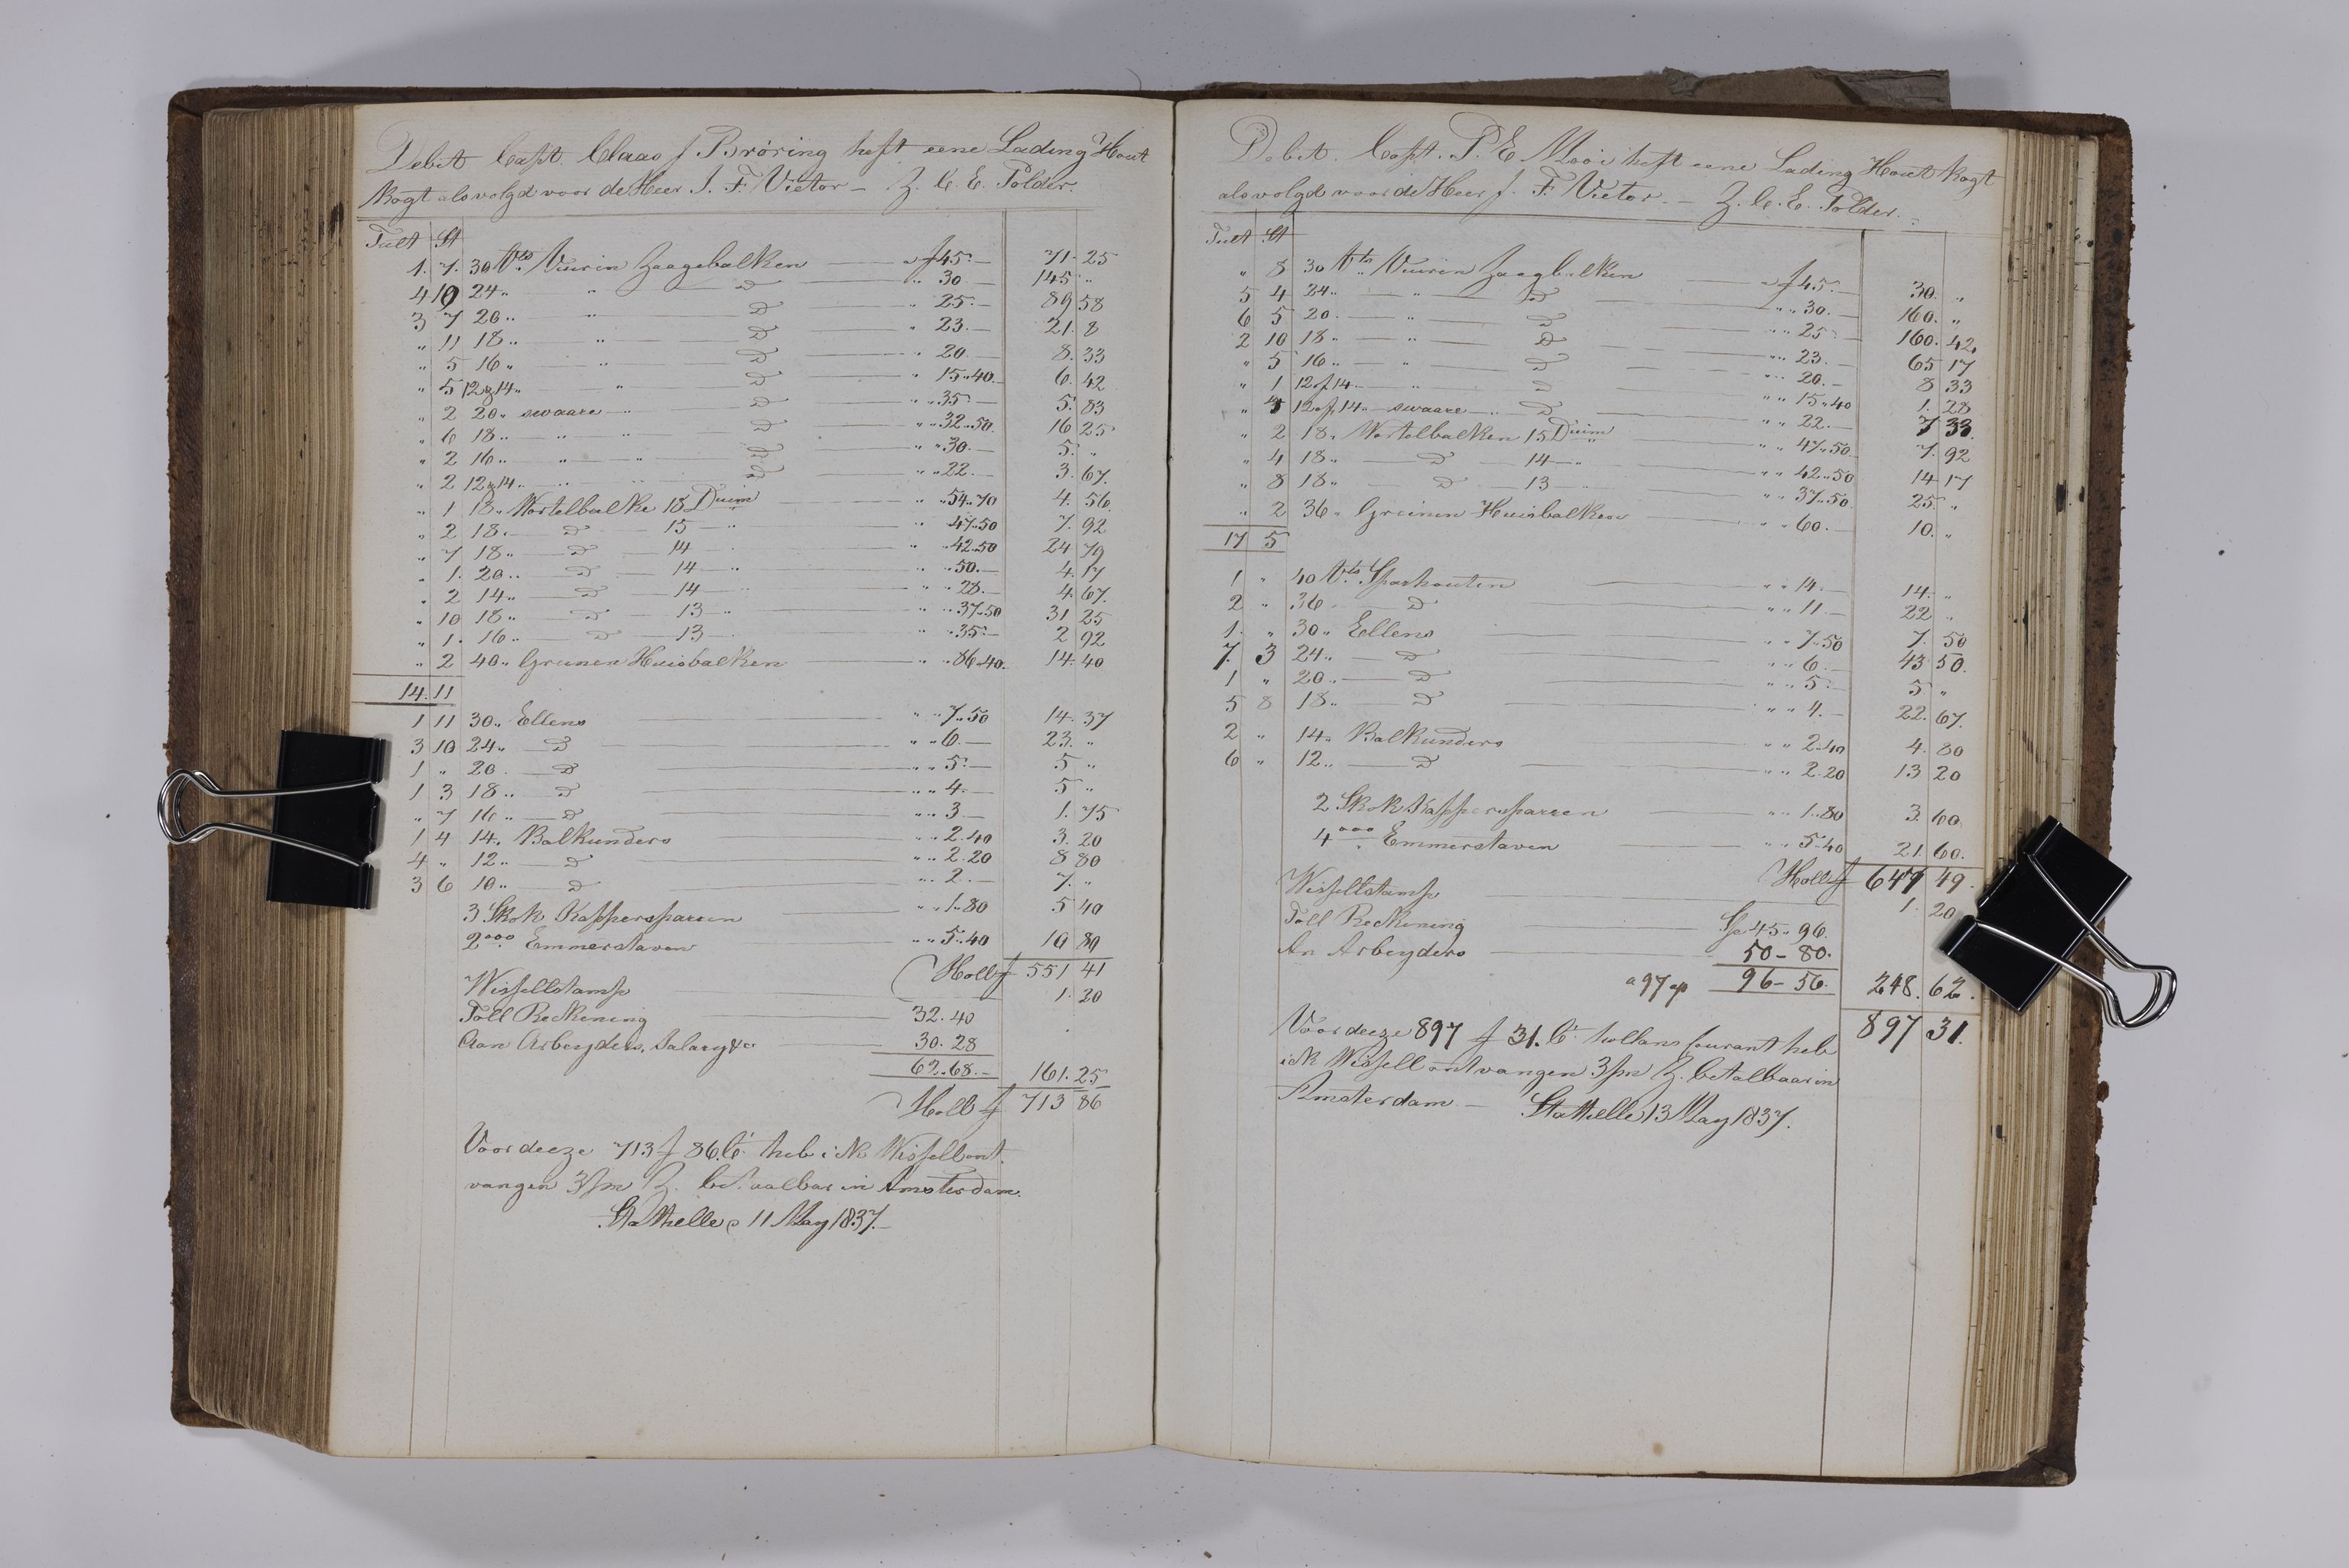 Debit Capt. Claas J Bröring heft eene Lading Hout
kogt als volgd voor de Heer J. F. Vietor — Z. C. E. Polder.
Tult St
1. 7. 30 Vts Vuurin Zaagebalken — a f 45.— 71.25
4 10 24 „ „ D — „ 30.— 145 „
3 7 20 „ „ D — „ 25.— 89 58
„ 11 18 „ „ D — „ 23.— 21. 8
„ 5 16 „ „ D — „ 20.— 8.33
„ 5 12 & 14 „ „ D — „ 15„40 6.42
„ 2 20 „ swaare „ D — „ „ 35.— 5.83
„ 6 18 „ „ „ D — „ „ 32„50 16 25
„ 2 16 „ „ „ D — „ „ 30.— 5. „
„ 2 12 & 14 „ „ „ D — „ „ 22.— 3.67.
„ 1 18 „ Wortelbalke 18 Duim — „ „ 54„70 4.56
„ 2 18. — D — 15 — „ — „ 47„50 7.92
„ 7 18 „ — D — 14 — „ — „ „ 42„50 24 79
„ 1. 20 „ — D — 14 — „ — „ „ 50.— 4.17
„ 2 14 „ — D — 14 — „ — „ „ 28.— 4.67.
„ 10 18 „ — D — 13 „ — „ „ 37„50 31 25
„ 1. 16 „ — D — 13 — — „ „ 35.— 2 92
„ 2 40 „ Greinen Huisbalken — „ „ 86„40 14.40
14.11
1 11 30 „ Ellens — „ „ 7„50 14.37
3 10 24 „ D — „ „ 6.— 23. „
1 „ 20. — D — „ „ 5.— 5 „
1 3 18 „ D — „ „ 4.— 5 „
„ 7 16 „ — D — „ „ 3.— 1.75
1 4 14. Balkunders — „ „ 2.40 3.20
4 „ 12 „ — D — „ „ 2.20 8 80
3 6 10 „ — D — „ „ 2.— 7. „
3 Skok Kappersparren — „ „ 1„80 5 40
2ooo Emmerstaven — „ „ 5„40 10 80
Holl f 551 41
Wissellstamp — 1.20
Toll Reckening — 32.40
Aan Arbeyders, Salary &c — 30.28
62.68.— 161.25
Holl f 713 86
Voor deeze 713 f 86 Ct heb ick Wissell ont.
vangen 3/m Z. betaalbar in Amsterdam.
Stathelle 11 May 1837.—
Debit. Capt. P. E Mooi heft eene Lading Hout kogt
als volgd voor de Heer J. F. Vietor. — Z. C. E. Polder.
Tult St
„ 8 30 Vts Vuurin Zaagbalken — a f 45.— 30. „
5 4 24 „ — „ D — „ „ 30.— 160. „
6 5 20. — „ D — „ „ 25.— 160.42
2 10 18 „ — „ D — „ „ 23.— 65 17
„ 5 16 „ — „ D — „ „ 20.— 8 33
„ 1 12 & 14 „ „ D — „ „ 15„40 1.28
„ 4 12 & 14 „ swaare — „ D — „ „ 22.— 7 33
„ 2 18. Wortelbalken 15 Duim — „ „ 47„50 7.92
„ 4 18 „ D — 14 — „ — „ „ 42„50 14 17
„ 8 18 „ D — 13 — „ „ 37„50 25 „
„ 2 36 „ Greinen Huisbalken — „ „ 60.— 10. „
17 5
1 „ 40 Vts Sparhouten — „ „ 14.— 14. „
2 „ 36. D — „ „ 11.— 22 „
1. „ 30 „ Ellens — „ „ 7„50 7.50
7. 3 24 „ — D — „ „ 6.— 43 50.
1 „ 20 „ — D — „ „ 5.— 5 „
5 8 18 „ — D — „ „ 4.— 22.67.
2 „ 14 „ Balkunders — „ „ 2.40 4.80
6 „ 12 „ — D — „ „ 2.20 13 20
2 Skok Kappersparren — „ „ 1„80 3.60
4ooo Emmerstaven — „ „ 5„40 21.60.
Holl f 647 49.
Wissellstamp — 1.20
Toll Reckening — Sp 45„96.
An Arbeyders — 50 – 80.
a 97 96 – 56. 248.62.
897 31.
Voor deeze 897 f 31. Ct hollans Courant heb
ick Wissell ontvangen 3/m Z. betalbaar in
Amsterdam — Stathelle 13 May 1837.